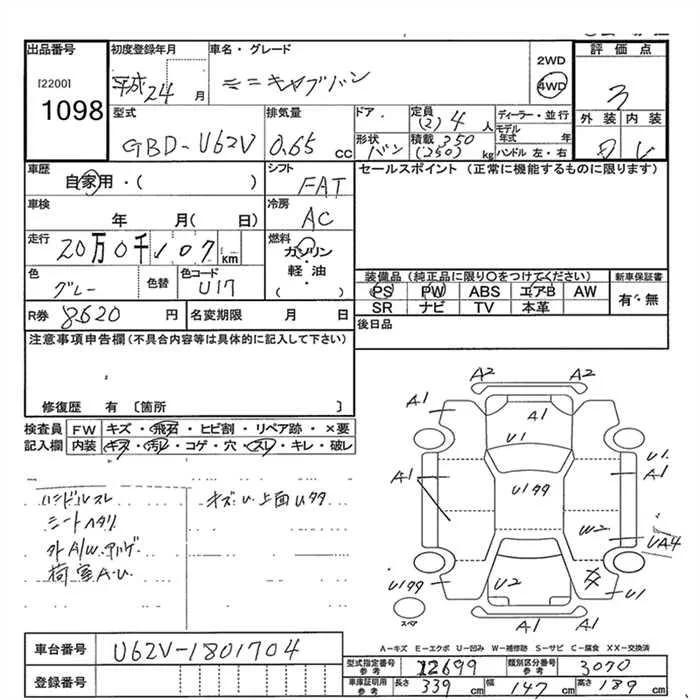 出品番号 初度登録年月 車名・グレード 2WD 評価点
[2200] 平成24月 ミニキャブバン 4WD 3
1098 型式 排気量 ドア 定員 (2) 4人 ディーラー・並行 外装 内装
GBD-U62V 0.65cc 形状 バン 積載 350 (250)kg モデル年式 年 ハンドル 左・右
車歴 自家用・( ) シフト FAT セールスポイント (正常に機能するものに限ります)
車検 年 月(日) 冷房 AC
走行 20万0千107km 燃料 ガソリン
色 グレー 色替 色コード U17 軽油 ( )
装備品 (純正品に限り〇をつけてください) 新車保証書
PS PW ABS エアB AW 有・無
SR ナビ TV 本革
R券 8620円 名変期限 月 日 後日品
注意事項申告欄 (不具合内容等は具体的に記入して下さい)
修復歴 有 〔箇所 〕
検査員 FW キズ・飛石・ヒビ割・リペア跡・×要
記入欄 内装 キズ・汚レ・コゲ・穴・スレ・キレ・破レ
ハンドルスレ キズU上面Uタタ
シートヘタリ
外A/W.アルゲ
荷室A-U
A2 A2
A1 A1 A1
U1 U1
A1 U1タタ A1
W2 UA4
U1タタ U2 U1
スペア
A-キズ E-エクボ U-凹み W-補修跡 S-サビ C-腐食 XX-交換済
車台番号 U62V-1801704
登録番号
型式指定番号 参考 12699 類別区分番号 参考 3070
車庫証明用 参考 長さ 339cm 幅 147cm 高さ 189cm